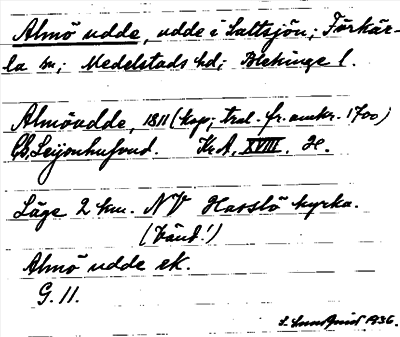 Almö udde, udde i Saltsjön; Förkär-
la sn; Medelstads hd; Blekinge l.
Almöudde, 1811 (kop; trol. fr. omkr. 1700)
Cb. Leijonhufvud. Kr A, XVIII. H.
Läge 2 km. NV Hasslö kyrka.
(Vänd!)
Almö udde ek.
G. 11.
S. Lundquist 1936.